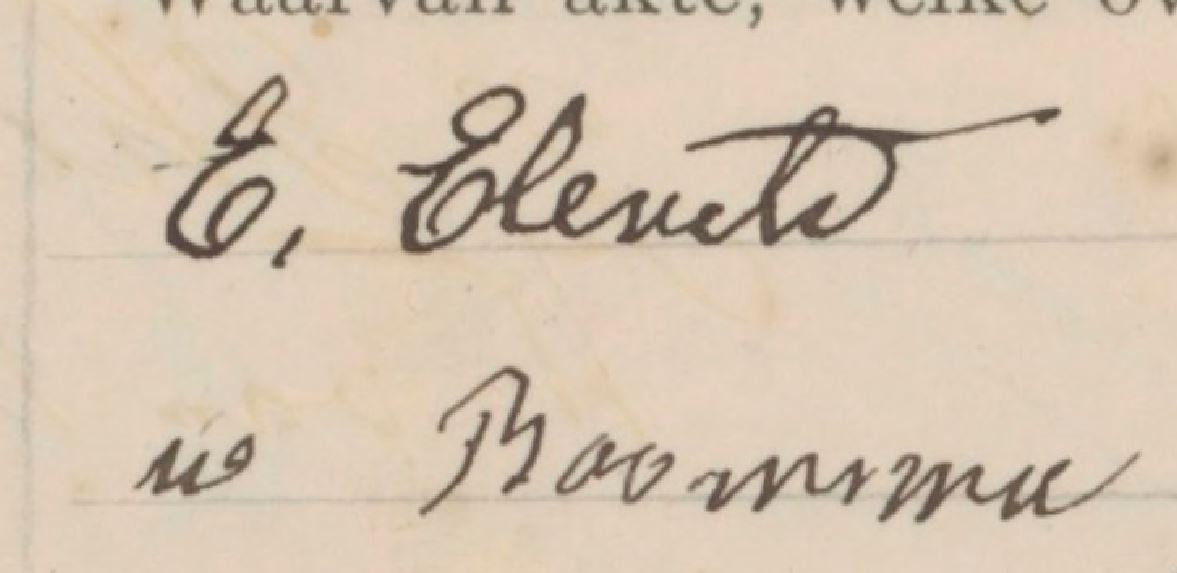 Waarvan akte, welke ov
E. Elevelt
w Boomsma